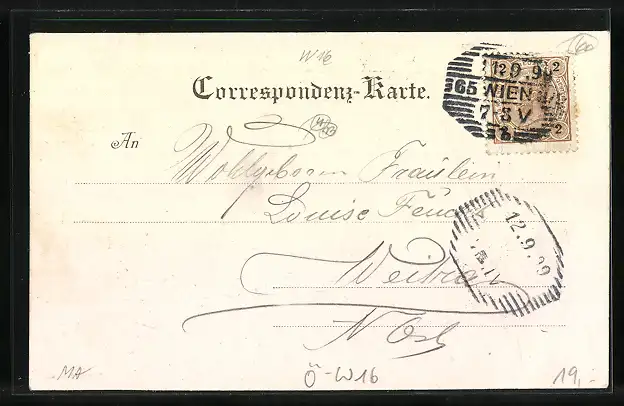 W16
60
Correspondenz-Karte.
12 9 99
65 WIEN 1/1
7 - 8 V
2
2
An
Wohlgeboren Fräulein
Louise
12.9.99
Weitra
N. Öst.
MA
Ö-W16
19,-